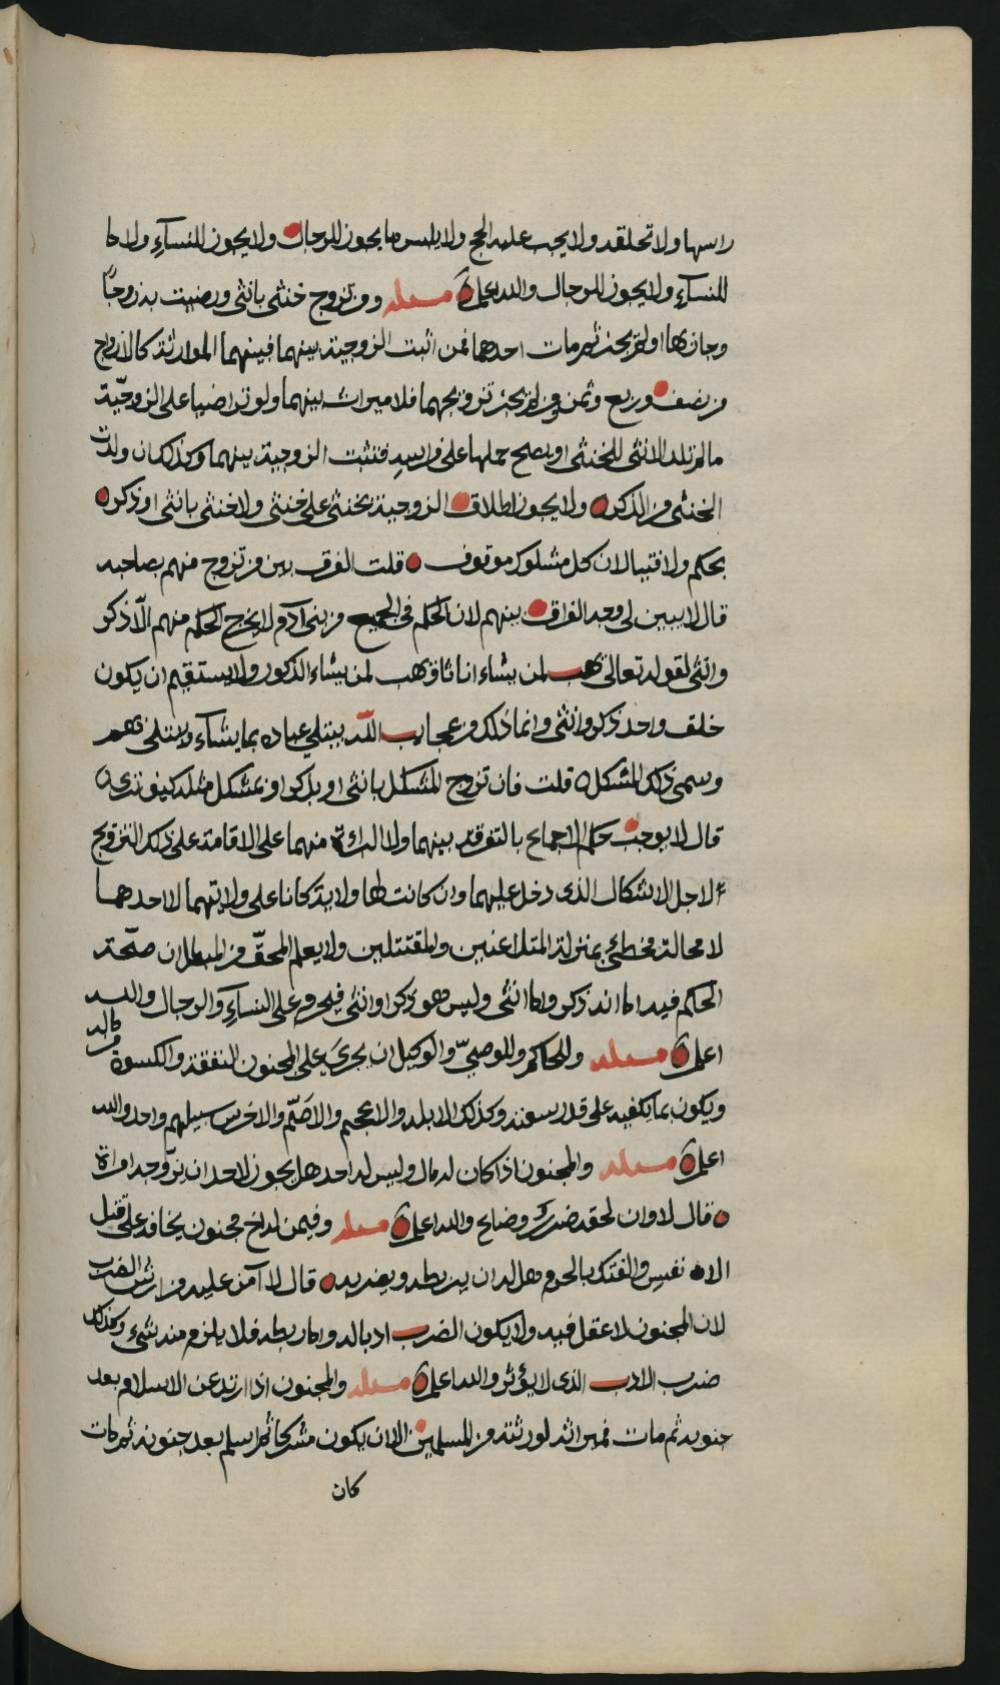 راسها ولا تحلقه ولا يجب عليه الحج ولا يلبس ما يجوز للرجال ولا يجوز للنساء ولا ما
للنساء ولا يجوز للرجال والله اعلم مسئلة ومن تزوج خنثى بانثى ورضيت به زوجا
وجاز بها او لم يجز ثم مات احدهما فمن اثبت الزوجية بينهما فبينهما الموارثة كالازواج
من نصف وربع وثمن ومن لم يجز تزويجهما فلا ميراث بينهما ولو تراضيا على الزوجية
ما لم تلد الانثى للخنثى او يصح حملها على فراشه فتثبت الزوجية بينهما وكذلك ان ولدت
الخنثى من الذكر ولا يجوز اطلاق الزوجية بخنثى على خنثى ولا خنثى بانثى او ذكر
بحكم ولا فتيا لان كل مشكوك موقوف قلت الفرق بين من تزوج منهم بصاحبه
قال لا يبين لي وجه الفراق بينهم لان الحكم في الجميع من بني آدم لا يخرج الحكم منهم الا ذكر
وانثى لقوله تعالى يهب لمن يشاء اناثا ويهب لمن يشاء الذكور ولا يستقيم ان يكون
خلق واحد ذكر وانثى وانما ذلك من عجايب الله يبتلي عباده بما يشاء ويبتلي بهم
وسمي ذلك المشكل قلت فان تزوج المشكل بانثى او بذكر او بمشكل مثله كيف ترى
قال لا يوجب حكم الاجماع بالتفرقة بينهما ولا البراءة منهما على الاقامة على ذلك التزويج
لاجل الاشكال الذي دخل عليهما وان كانت لهما ولاية كانا على ولايتهما لا احدهما
لا محالة مخطئ بمنزلة المتلاعنين والمقتتلين ولا يعلم المحق من المبطل ان صحة
الحكم فيه اما انه ذكر واما انثى وليس هو ذكرا وانثى فيحرم على النساء والرجال والله
اعلم مسئلة وللحاكم وللوصي والوكيل ان يجري على المجنون النفقة والكسوة من ماله
ويكون بما يكفيه على قدر سعته وكذلك الابله والاعجم والاصم والاخرس سبيلهم واحد والله
اعلم مسئلة والمجنون اذا كان له مال وليس له احد هل يجوز لاحد ان يزوجه امراة
قال لا وان لحقه ضرر وضايع والله اعلم مسئلة وفيمن له اخ مجنون يخافه على قتل
الا نفس والفتك بالحرم هل له ان يربطه ويضربه قال لا آمن عليه من ارش الضرب
لان المجنون لا عقل فيه ولا يكون الضرب ادبا له واما ربطه فلا يلزم منه شيء وكذلك
ضرب الادب الذي لا يؤثر والله اعلم مسئلة والمجنون اذا ارتد عن الاسلام بعد
جنونه ثم مات فميراثه لورثته من المسلمين الا ان يكون مشركا ثم اسلم بعد جنونه ثم مات
كان